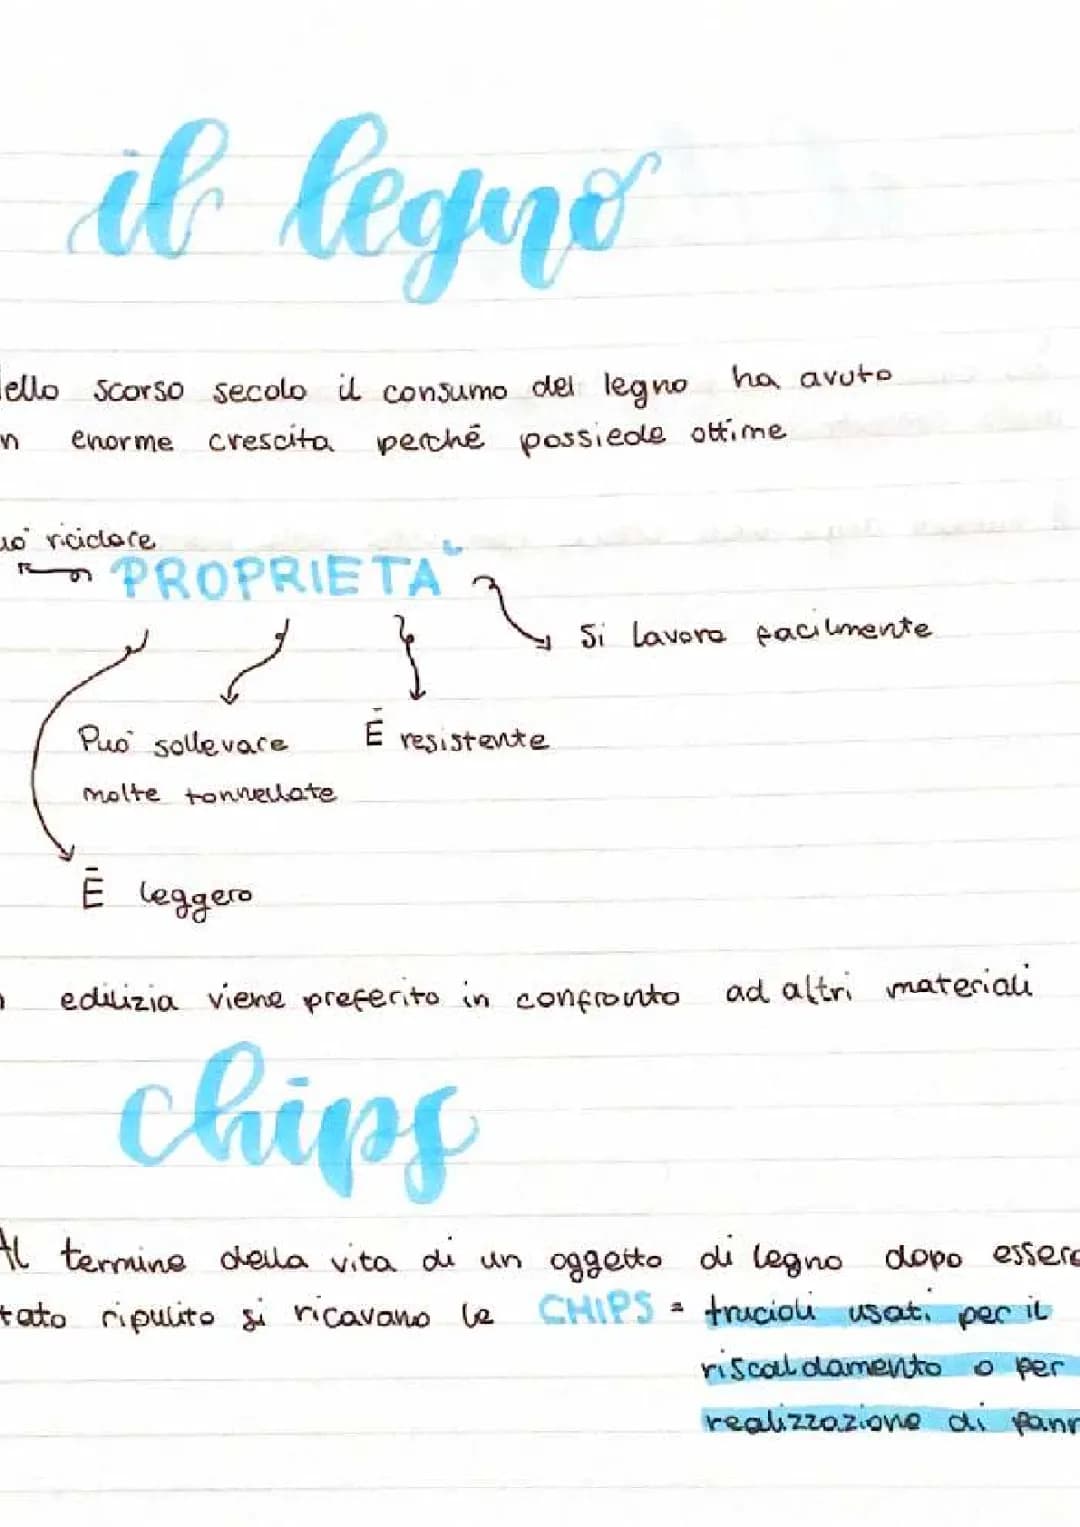 il legno
ello scorso secolo il consumo del legno ha avuto
n enorme crescita perché possiede ottime
uo' riciclare
PROPRIETA'
Si lavora facilmente
Puo' sollevare
È resistente
molte tonnellate
È leggero
edilizia viene preferito in confronto ad altri materiali
chips
Al termine della vita di un oggetto di legno dopo essere
tato ripulito si ricavano le CHIPS = trucioli usati per il
riscaldamento o per
realizzazione di pann